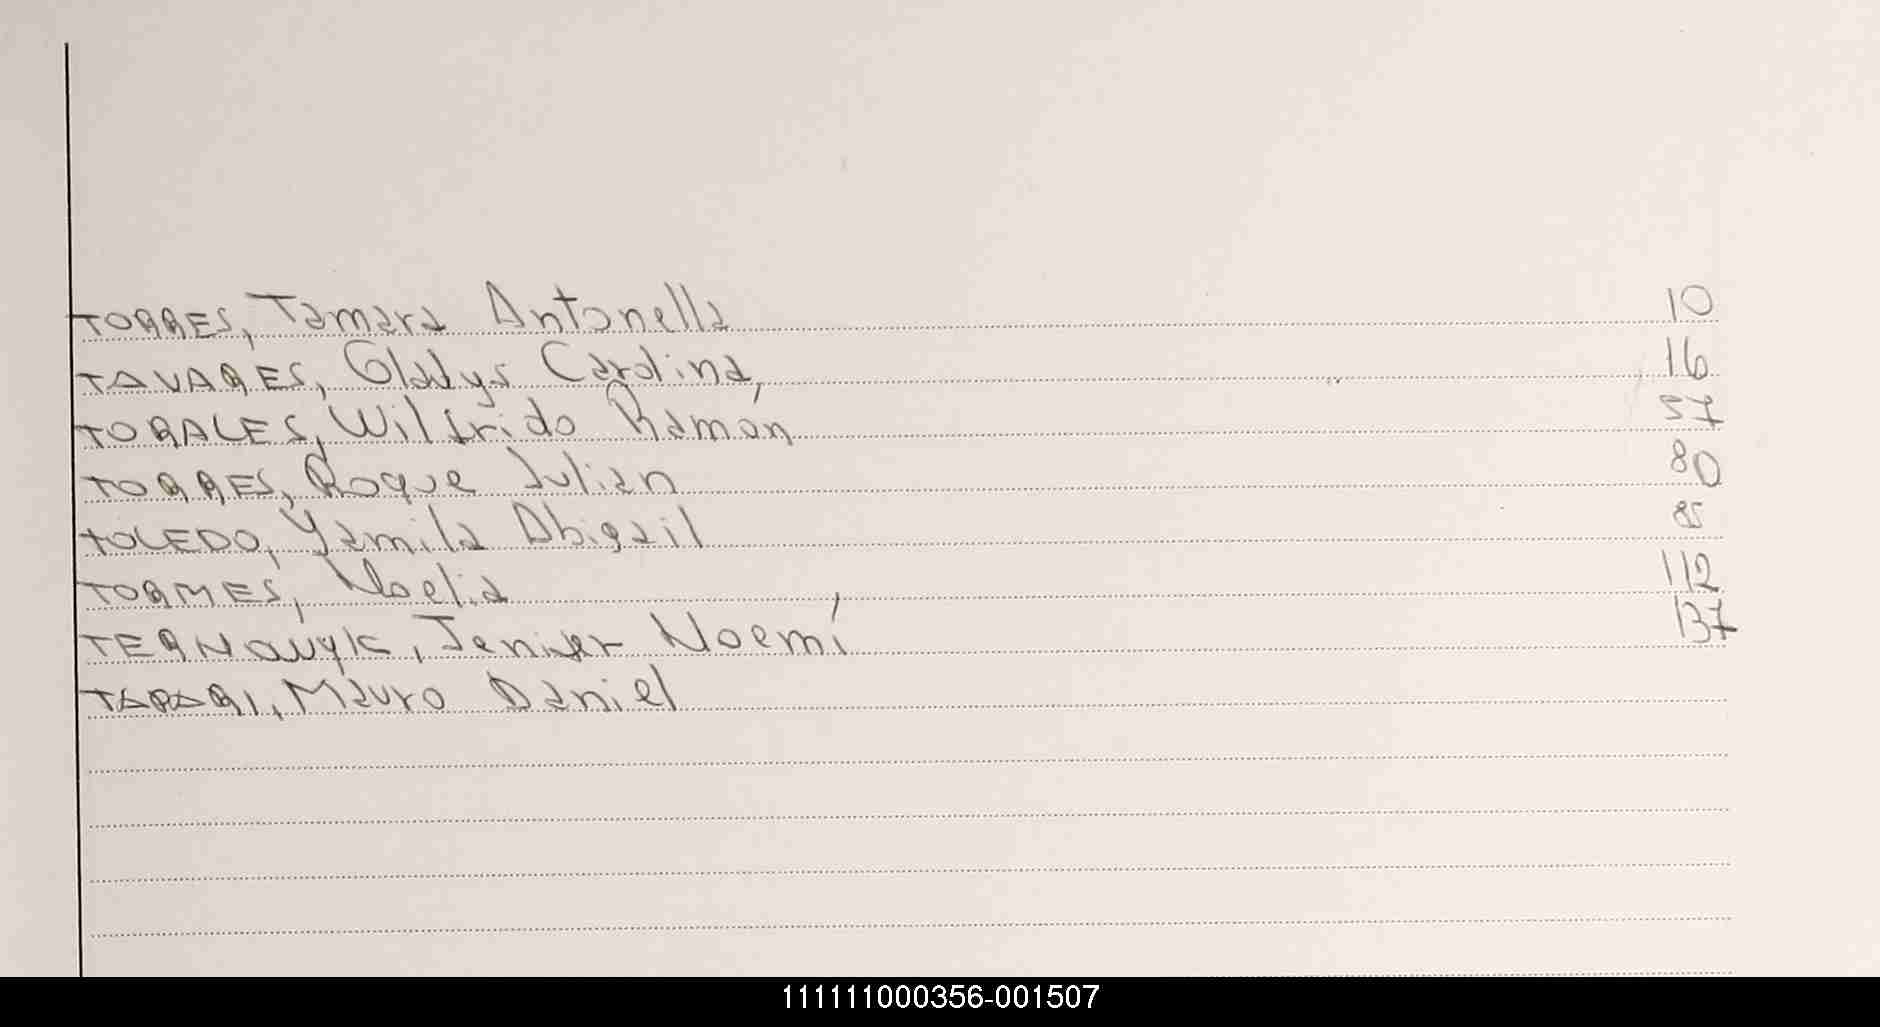 TORRES, Tamara Antonella 10
TAVARES, Gladys Carolina, 16
TORALES, Wilfrido Ramón 57
TORRES, Roque Julian 80
TOLEDO, Yamila Abigail 85
TORMES, Noelia 112
TERNOWYK, Jenifer Noemí 137
TARARI, Mauro Daniel
111111000356-001507